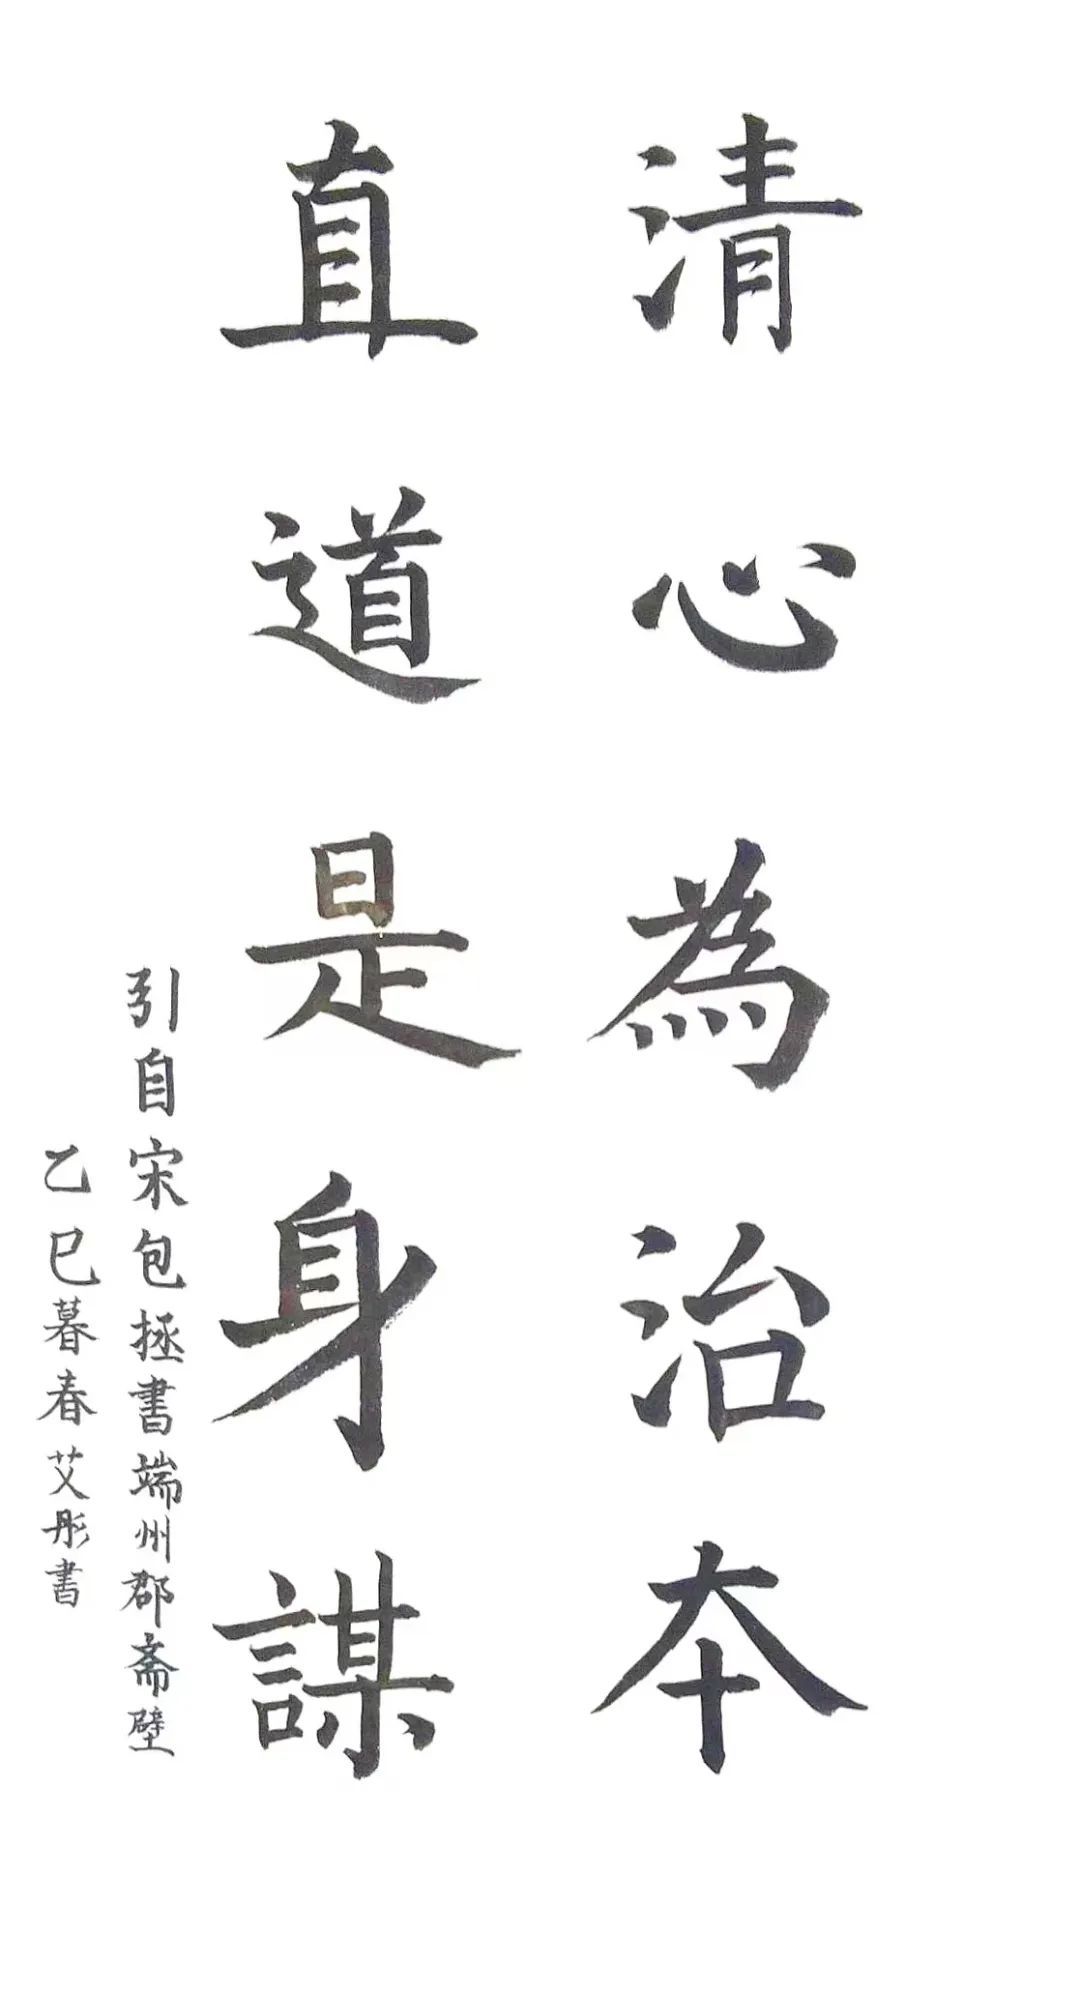 清心為治本
直道是身謀
引自宋包拯書端州郡斋壁
乙巳暮春艾彤書